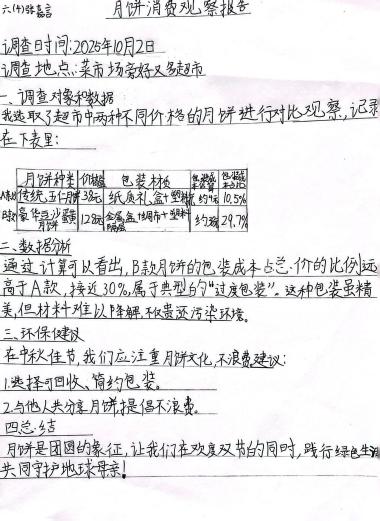 六(4)
月饼消费观察报告
调查时间:2025年10月2日
调查地点:菜市场旁好又多超市
一、调查对象和数据
我选取了超市中两种不同价格的月饼进行对比观察,记录
在下表里:
月饼种类 价格 包装材质 包装成本 包装占比
A款 传统五仁月饼 38元 纸质礼盒+塑料 约4元 10.5%
B款 豪华豆沙蛋黄月饼 128元 金属盒+绸布+塑料隔层 约38元 29.7%
二、数据分析
通过计算可以看出,B款月饼的包装成本占总价的比例远
高于A款,接近30%,属于典型的“过度包装”。这种包装虽精
美,但材料难以降解,不仅贵还污染环境。
三、环保建议
在中秋佳节,我们应注重月饼文化,不浪费建议:
1.选择可回收、简约包装。
2.与他人共分享月饼提倡不浪费。
四总结
月饼是团圆的象征,让我们在欢度双节的同时,践行绿色生活
共同守护地球母亲!